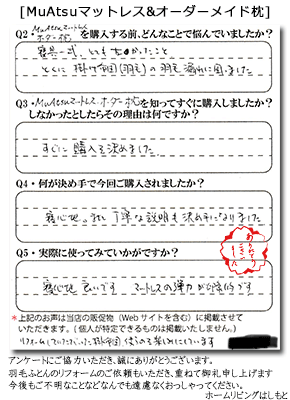 [MuAtsuマットレス&オーダーメイド枕]
Q2・MuAtsuマットレス オーダー枕を購入する前、どんなことで悩んでいましたか?
寝具一式
とくに 掛け布団(羽毛)の羽毛漏れに困りました
Q3・MuAtsuマットレス オーダー枕を知ってすぐに購入しましたか?
しなかったとしたらその理由は何ですか?
すぐに 購入を決めました
Q4・何が決め手で今回ご購入されましたか?
寝心地 丁寧な説明も決め手になりました
Q5・実際に使ってみていかがですか?
寝心地 良いです マットレスの弾力が印象的です
*上記のお声は当店の販促物(Webサイトを含む)に掲載させて
いただきます。(個人が特定できるものは掲載いたしません。)
リフォームしていただいた掛布団 使うのを楽しみにしています
アンケートにご協力いただき、誠にありがとうございます。
羽毛ふとんのリフォームのご依頼もいただき、重ねて御礼申し上げます
今後もご不明なことなどなんでも遠慮なくおっしゃってください。
ホームリビングはしもと